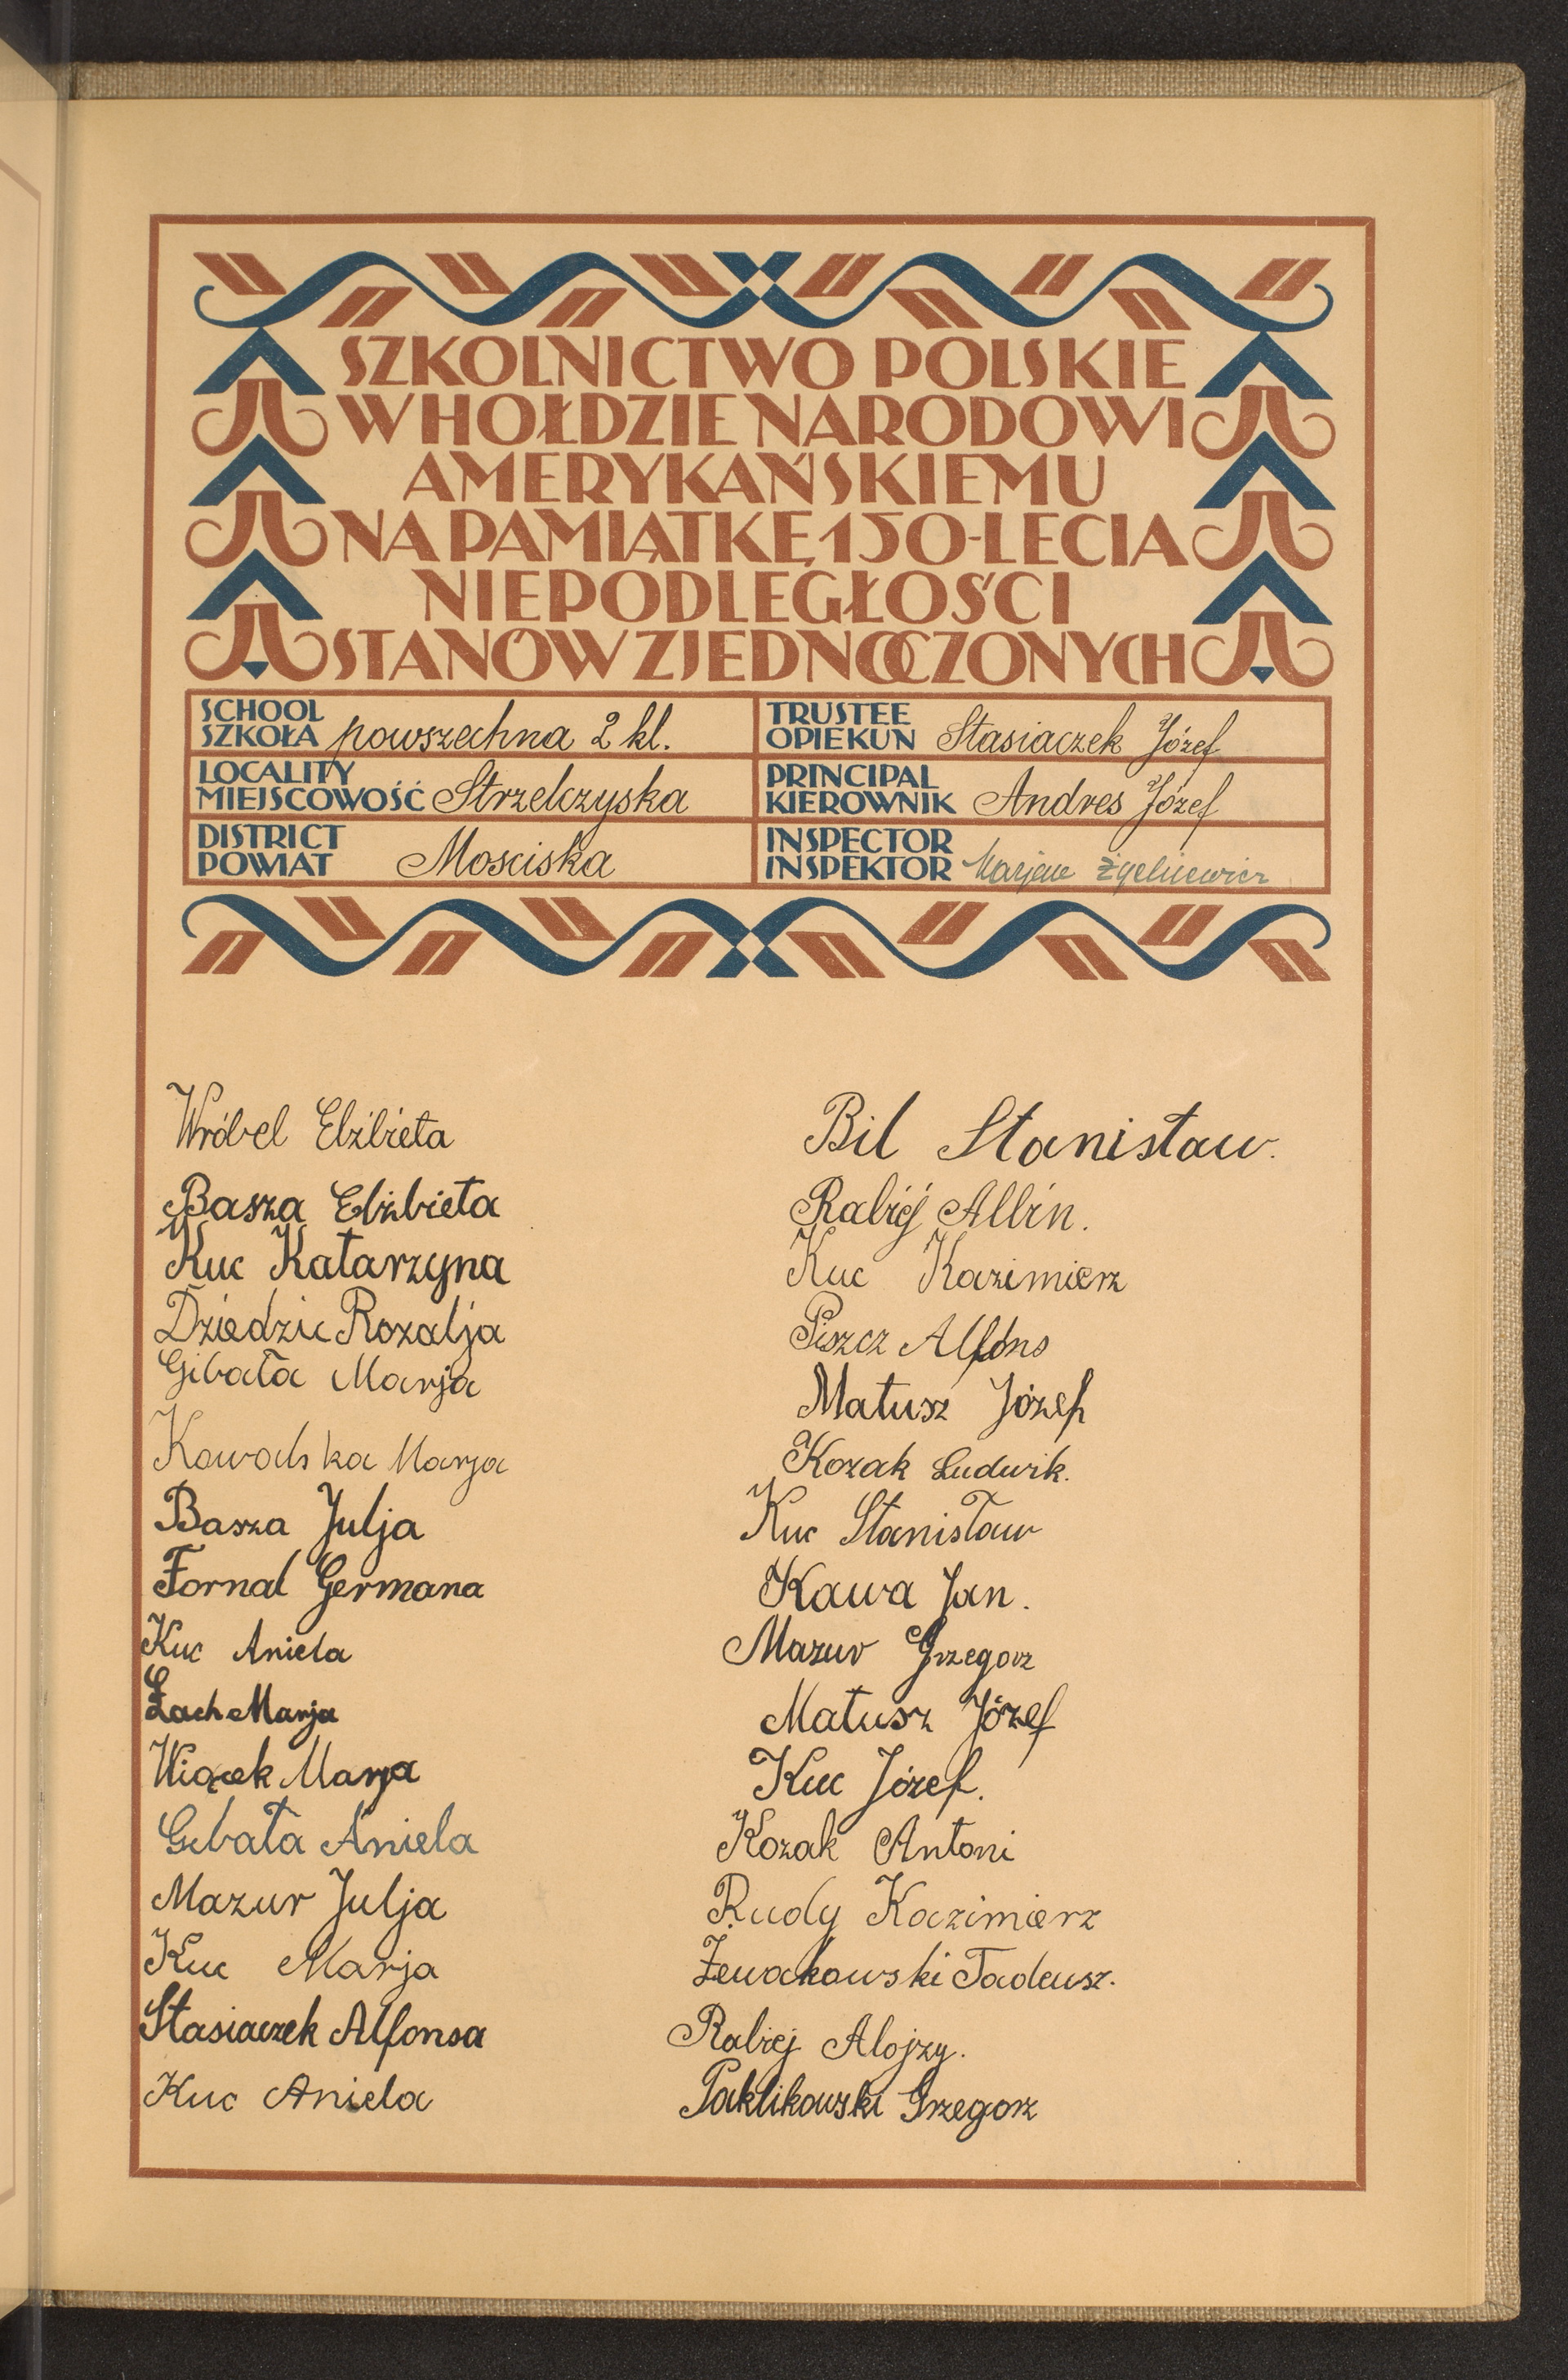 SZKOLNICTWO POLSKIE
W HOŁDZIE NARODOWI
AMERYKAŃSKIEMU
NA PAMIĄTKĘ 150-LECIA
NIEPODLEGŁOŚCI
STANÓW ZJEDNOCZONYCH
SCHOOL
SZKOŁA powszechna 2 kl.
TRUSTEE
OPIEKUN Stasiaczek Józef
LOCALITY
MIEJSCOWOŚĆ Strzelczyska
PRINCIPAL
KIEROWNIK Andres Józef
DISTRICT
POWIAT Mosciska
INSPECTOR
INSPEKTOR
Wróbel Elżbieta
Basza Elżbieta
Kuc Katarzyna
Dziedzic Rozalja
Gibała Marja
Marja
Basza Julja
Fornal Germana
Kuc Aniela
Żach Marja
Wiącek Marja
Gibała Aniela
Mazur Julja
Kuc Marja
Stasiaczek Alfonsa
Kuc Aniela
Bil Stanisław.
Rabiej Albin.
Kuc Kazimierz
Piszcz Alfons
Matusz Józef
Kozak Ludwik.
Kuc Stanisław
Kawa Jan.
Mazur Grzegorz
Matusz Józef
Kuc Józef.
Kozak Antoni
Rudy Kazimierz
Żewakowski Tadeusz.
Rabiej Alojzy.
Paklikowski Grzegorz